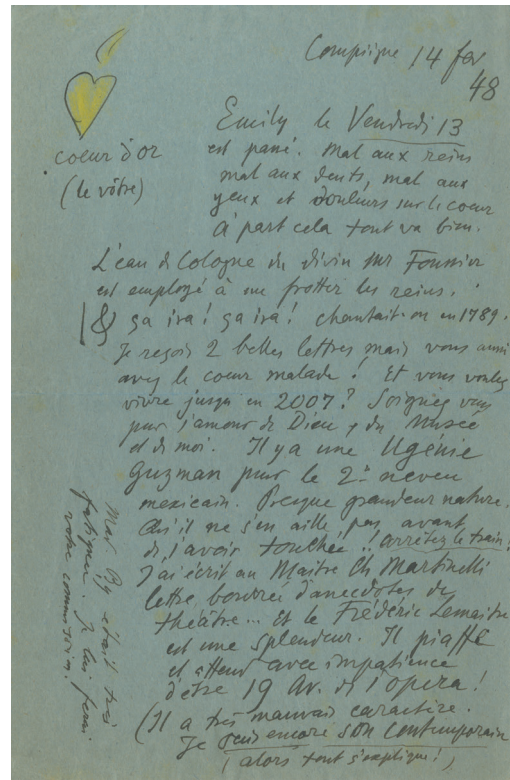 Compiègne 14 fev
48
coeur d'or
(le vôtre)
Emily le Vendredi 13
est passé. Mal aux reins
mal aux dents, mal aux
yeux et douleurs sur le coeur
à part cela tout va bien.
L'eau de Cologne du divin Mr Fournier
est employé à me frotter les reins.
& ça ira! ça ira! chantait-on en 1789.
Je reçois 2 belles lettres mais vous aussi
avez le coeur malade! Et vous voulez
vivre jusqu'en 2007? Soignez vous
pour l'amour de Dieu, du Musée
et de moi. Il y a une Ugénie
Guzman pour le 2e neveu
mexicain. Presque grandeur nature.
Qu'il ne s'en aille pas avant
de l'avoir touchée!! arrêtez le train!
J'ai écrit au Maitre Ch Martinelli
lettre bourrée d'anecdotes de
théâtre... Et le Frédéric Lemaitre
est une splendeur. Il piaffe
et attend avec impatience
d'être 19 Av. de l'opera!
(Il a très mauvais caractère.
Je suis encore son contemporain
(alors tout s'explique!)
Mad. Py était très
fatiguée. Je lui ferai
votre commission.